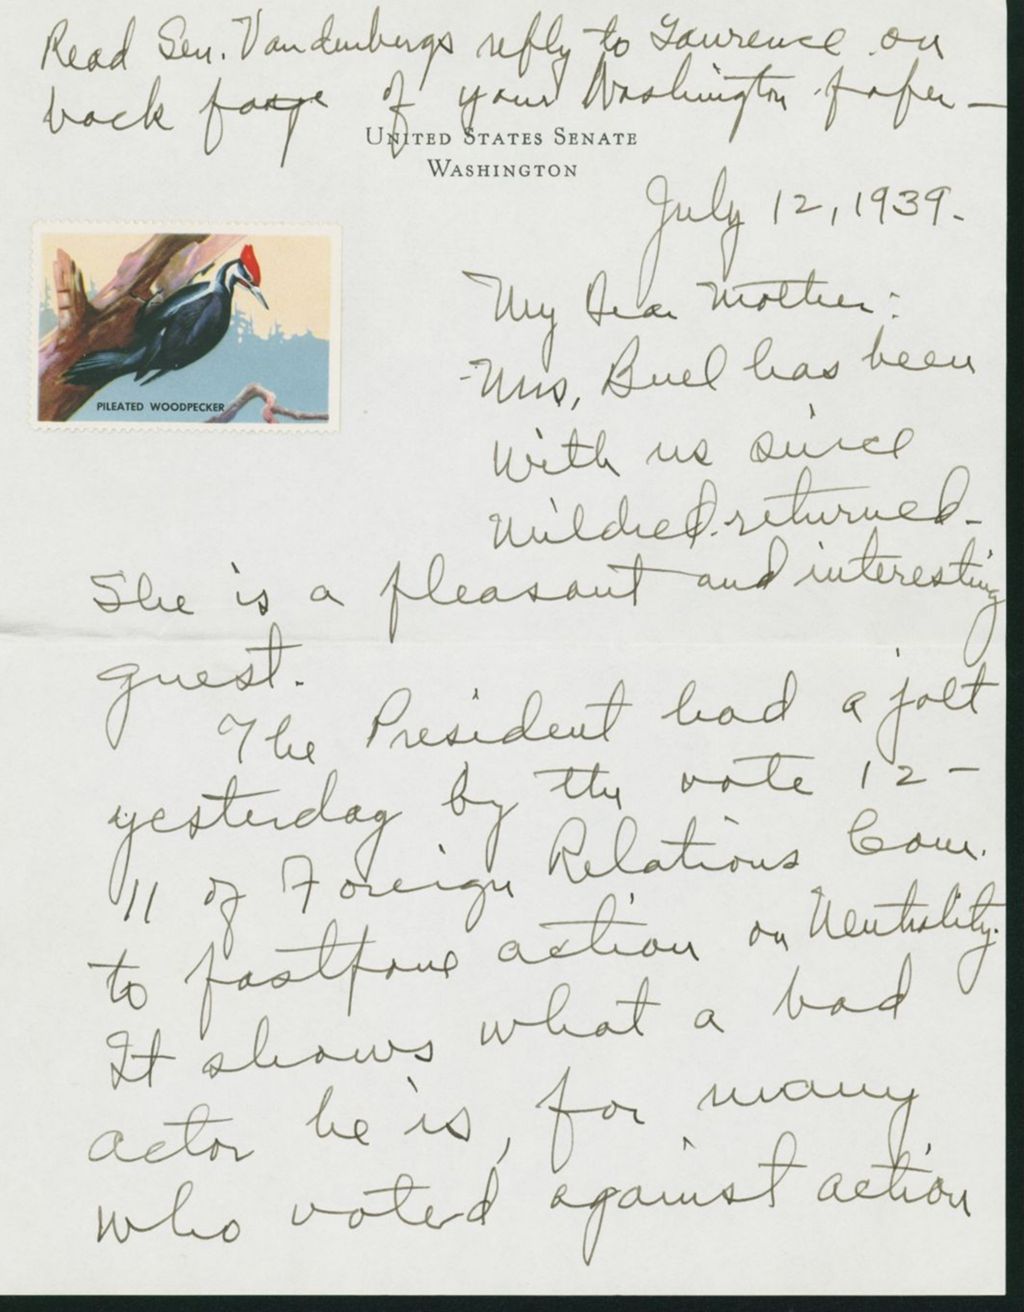 Read Sen. Vandenbergs reply to Lawrence on
back page of your Washington paper —
UNITED STATES SENATE
WASHINGTON
July 12, 1939.
PILEATED WOODPECKER
My Dear Mother:
Mrs. Buel has been
with us since
Mildred returned.
She is a pleasant and interesting
guest.
The President had a jolt
yesterday by the vote 12 -
11 of Foreign Relations Com.
to postpone action on Neutrality.
It shows what a bad
actor he is, for many
who voted against action